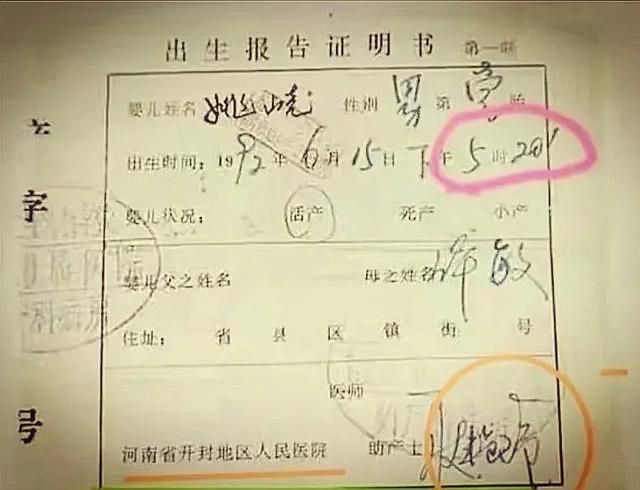 出生报告证明书 第一联
婴儿姓名 姚 性别 男 第 壹 胎
出生时间：1992年6月15日下午5时20分
婴儿状况： 活产 死产 小产
婴儿父之姓名 母之姓名 许敏
住址： 省 县 区 镇 街 号
医师
河南省开封地区人民医院 助产士
字
号